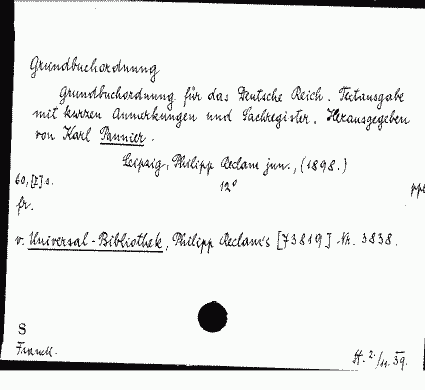 Grundbuchordnung
Grundbuchordnung für das Deutsche Reich. Textausgabe
mit kurzen Anmerkungen und Sachregister. Herausgegeben
von Karl Pannier.
Leipzig, Philipp Reclam jun., (1898.)
60, [I] S. 12°
fr.
v. Universal-Bibliothek, Philipp Reclam's [73819] Nr. 3838.
S
Franck. H. 2./11. 39.